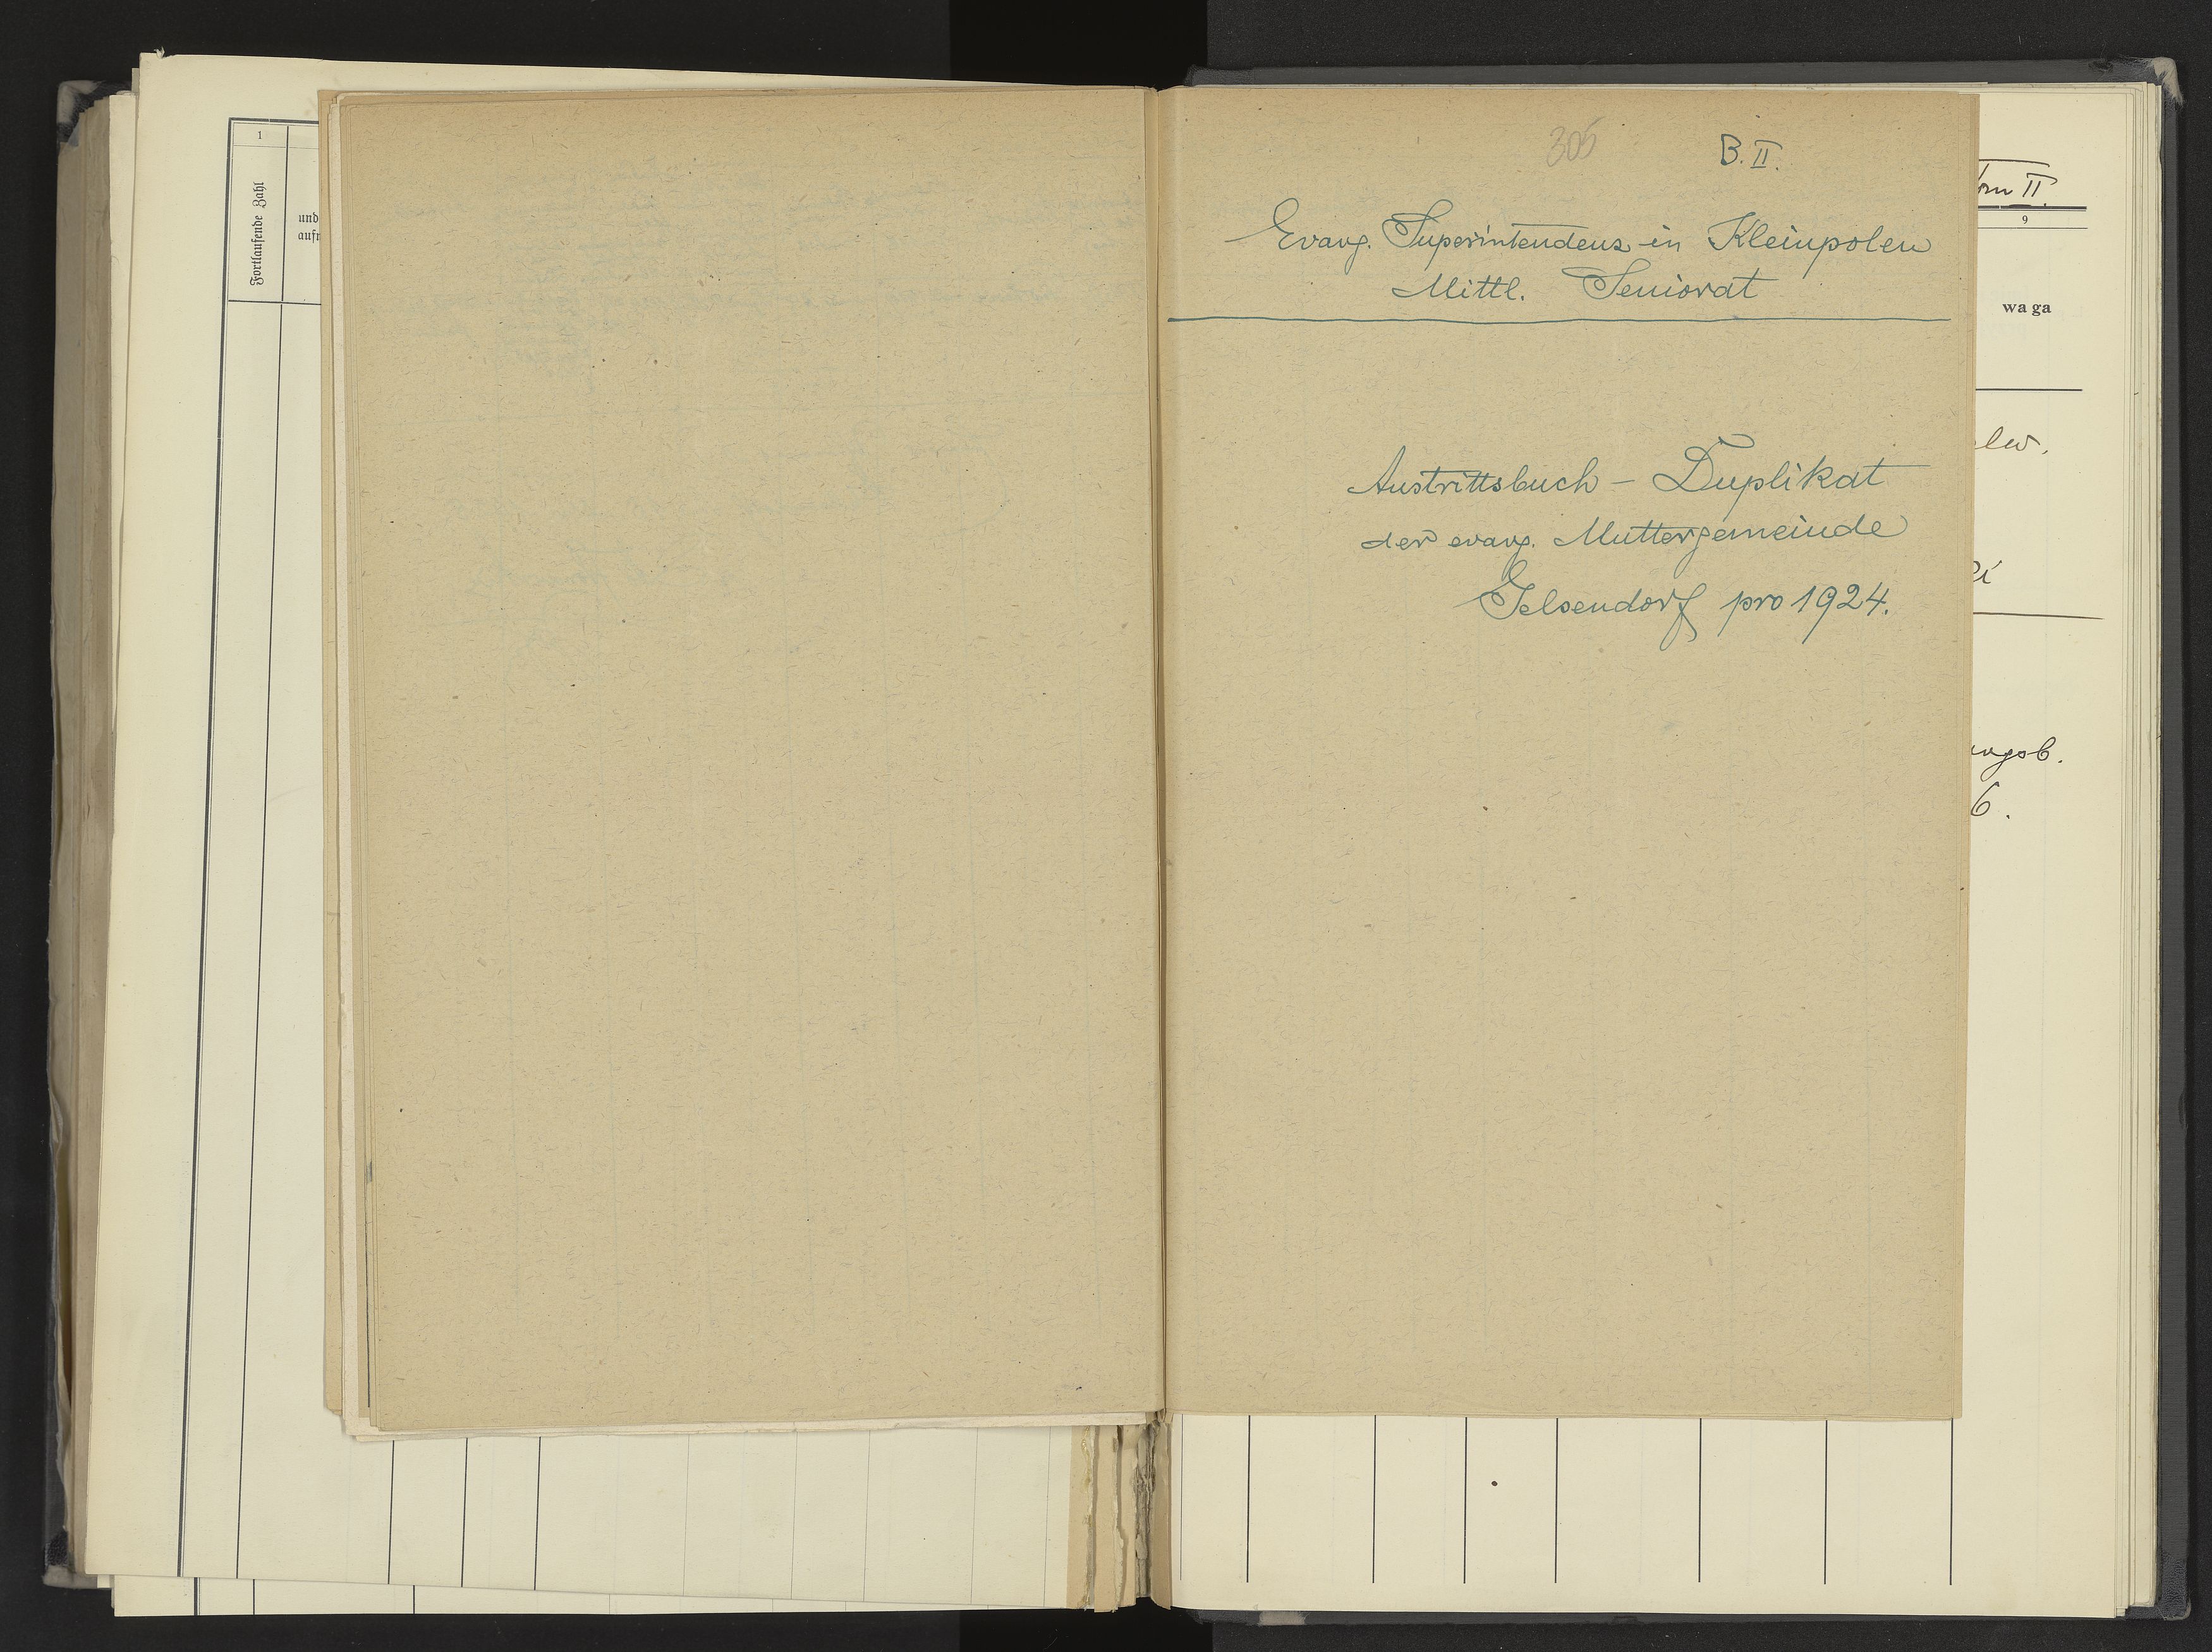 1
Fortlaufende Zahl
und
aufn
305
B. II.
Evang. Superintendenz in Kleinpolen
Mittl. Seniorat
Austrittsbuch – Duplikat
der evang. Muttergemeinde
Gelsendorf pro 1924.
II.
9
waga
6.